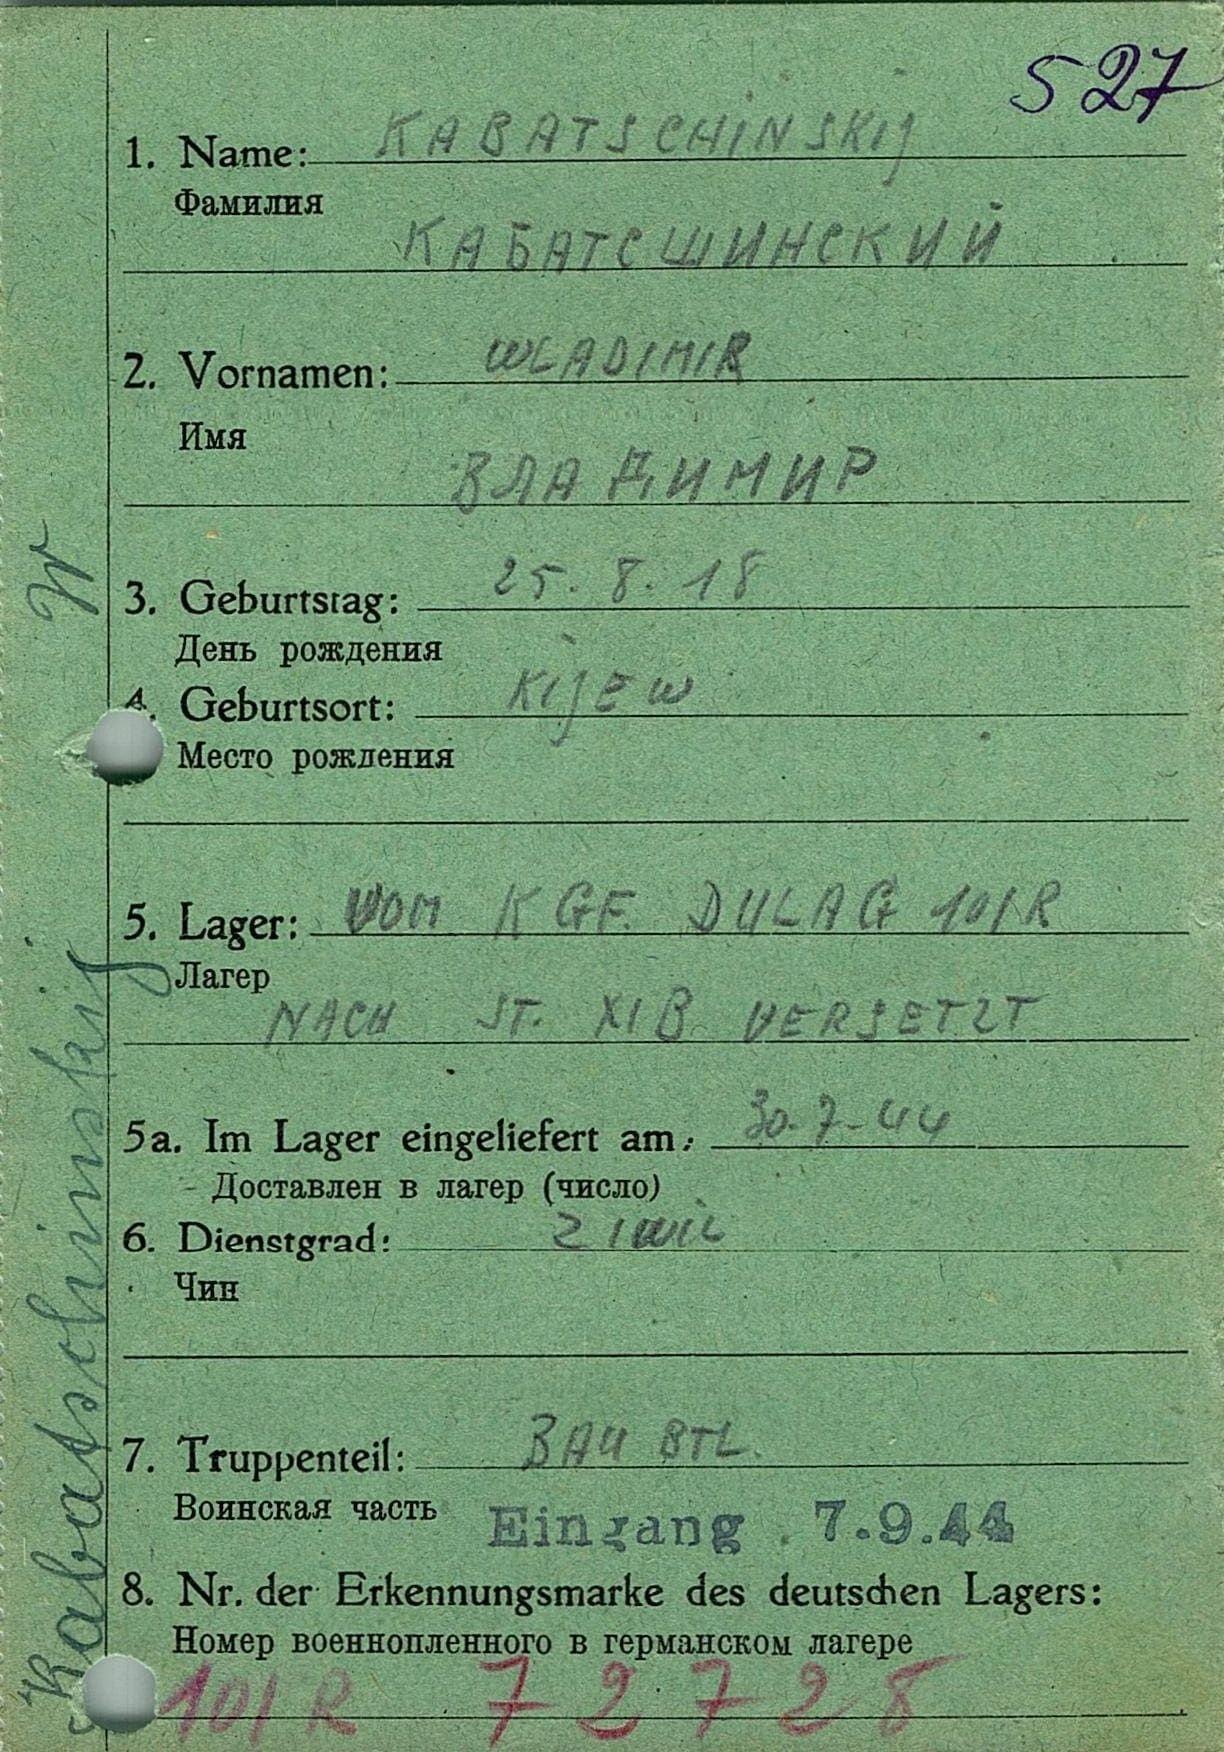 S 27
1. Name: KABATSCHINSKIJ
Фамилия
КАБАТСШИНСКИЙ
2. Vornamen: WLADIMIR
Имя
ВЛАДИМИР
3. Geburtstag: 25. 8. 18
День рождения
4. Geburtsort: KIJEW
Место рождения
5. Lager: VOM KGF. DULAG 101/R
Лагер
NACH ST. XI B VERSETZT
5a. Im Lager eingeliefert am: 30.7.44
Доставлен в лагер (число)
6. Dienstgrad: ZIWIL
Чин
7. Truppenteil: BAU BTL.
Воинская часть
Eingang 7.9.44
8. Nr. der Erkennungsmarke des deutschen Lagers:
Номер военнопленного в германском лагере
101/R 72728
Kabatschinskij W